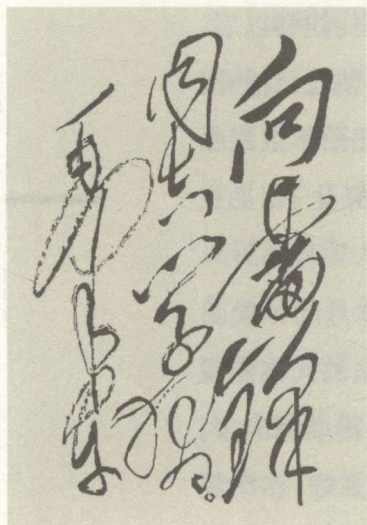 向雷锋
同志学习。
毛泽东